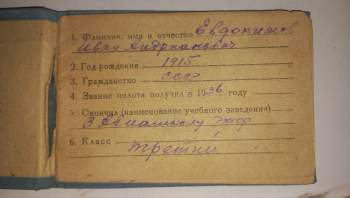 1. Фамилия, имя и отчество Евдокимов
Иван Андрианович
2. Год рождения 1915
3. Гражданство СССР
4. Звание пилота получил в 1936 году
5. Окончил (наименование учебного заведения)
3
6. Класс третий